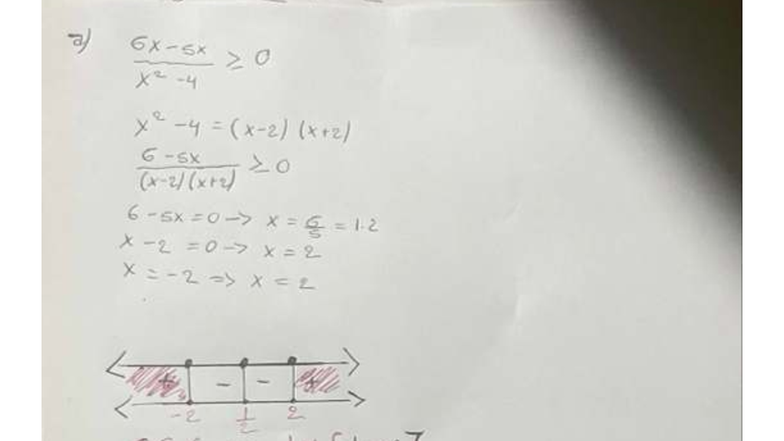 a) 6x-5x / x² -4 ≥ 0
x² -4 = (x-2) (x+2)
6-5x / (x-2)(x+2) ≥ 0
6-5x=0 -> x = 6/5 = 1.2
x -2 =0 -> x = 2
x = -2 => x = 2
+ - - +
-2 1/2 2